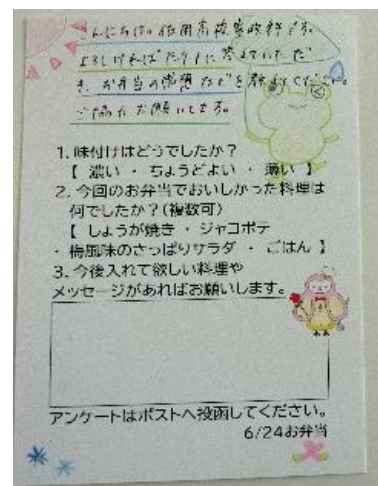 こんにちは。佐田高校家政科です。
よろしければアンケートに答えていただ
き、お弁当の感想などを教えてください。
ご協力お願いします。
1. 味付けはどうでしたか?
【 濃い ・ ちょうどよい ・ 薄い 】
2. 今回のお弁当でおいしかった料理は
何でしたか?(複数可)
【 しょうが焼き ・ ジャコポテ
・ 梅風味のさっぱりサラダ ・ ごはん 】
3. 今後入れて欲しい料理や
メッセージがあればお願いします。
アンケートはポストへ投函してください。
6/24お弁当